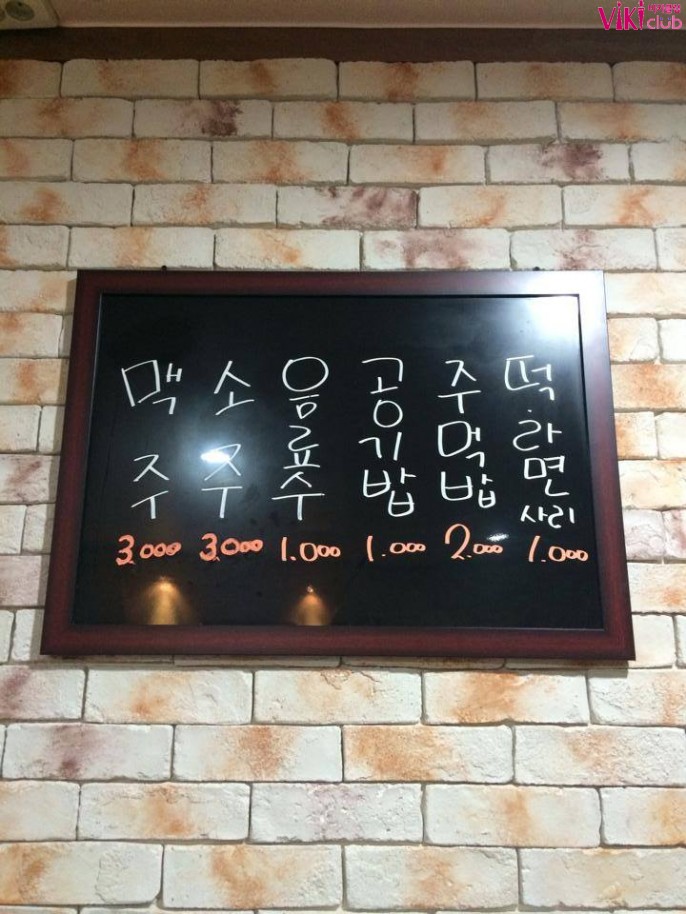 맥주 3.000
소주 3.000
음료수 1.000
공기밥 1.000
주먹밥 2.000
떡.라면사리 1.000
Viki club